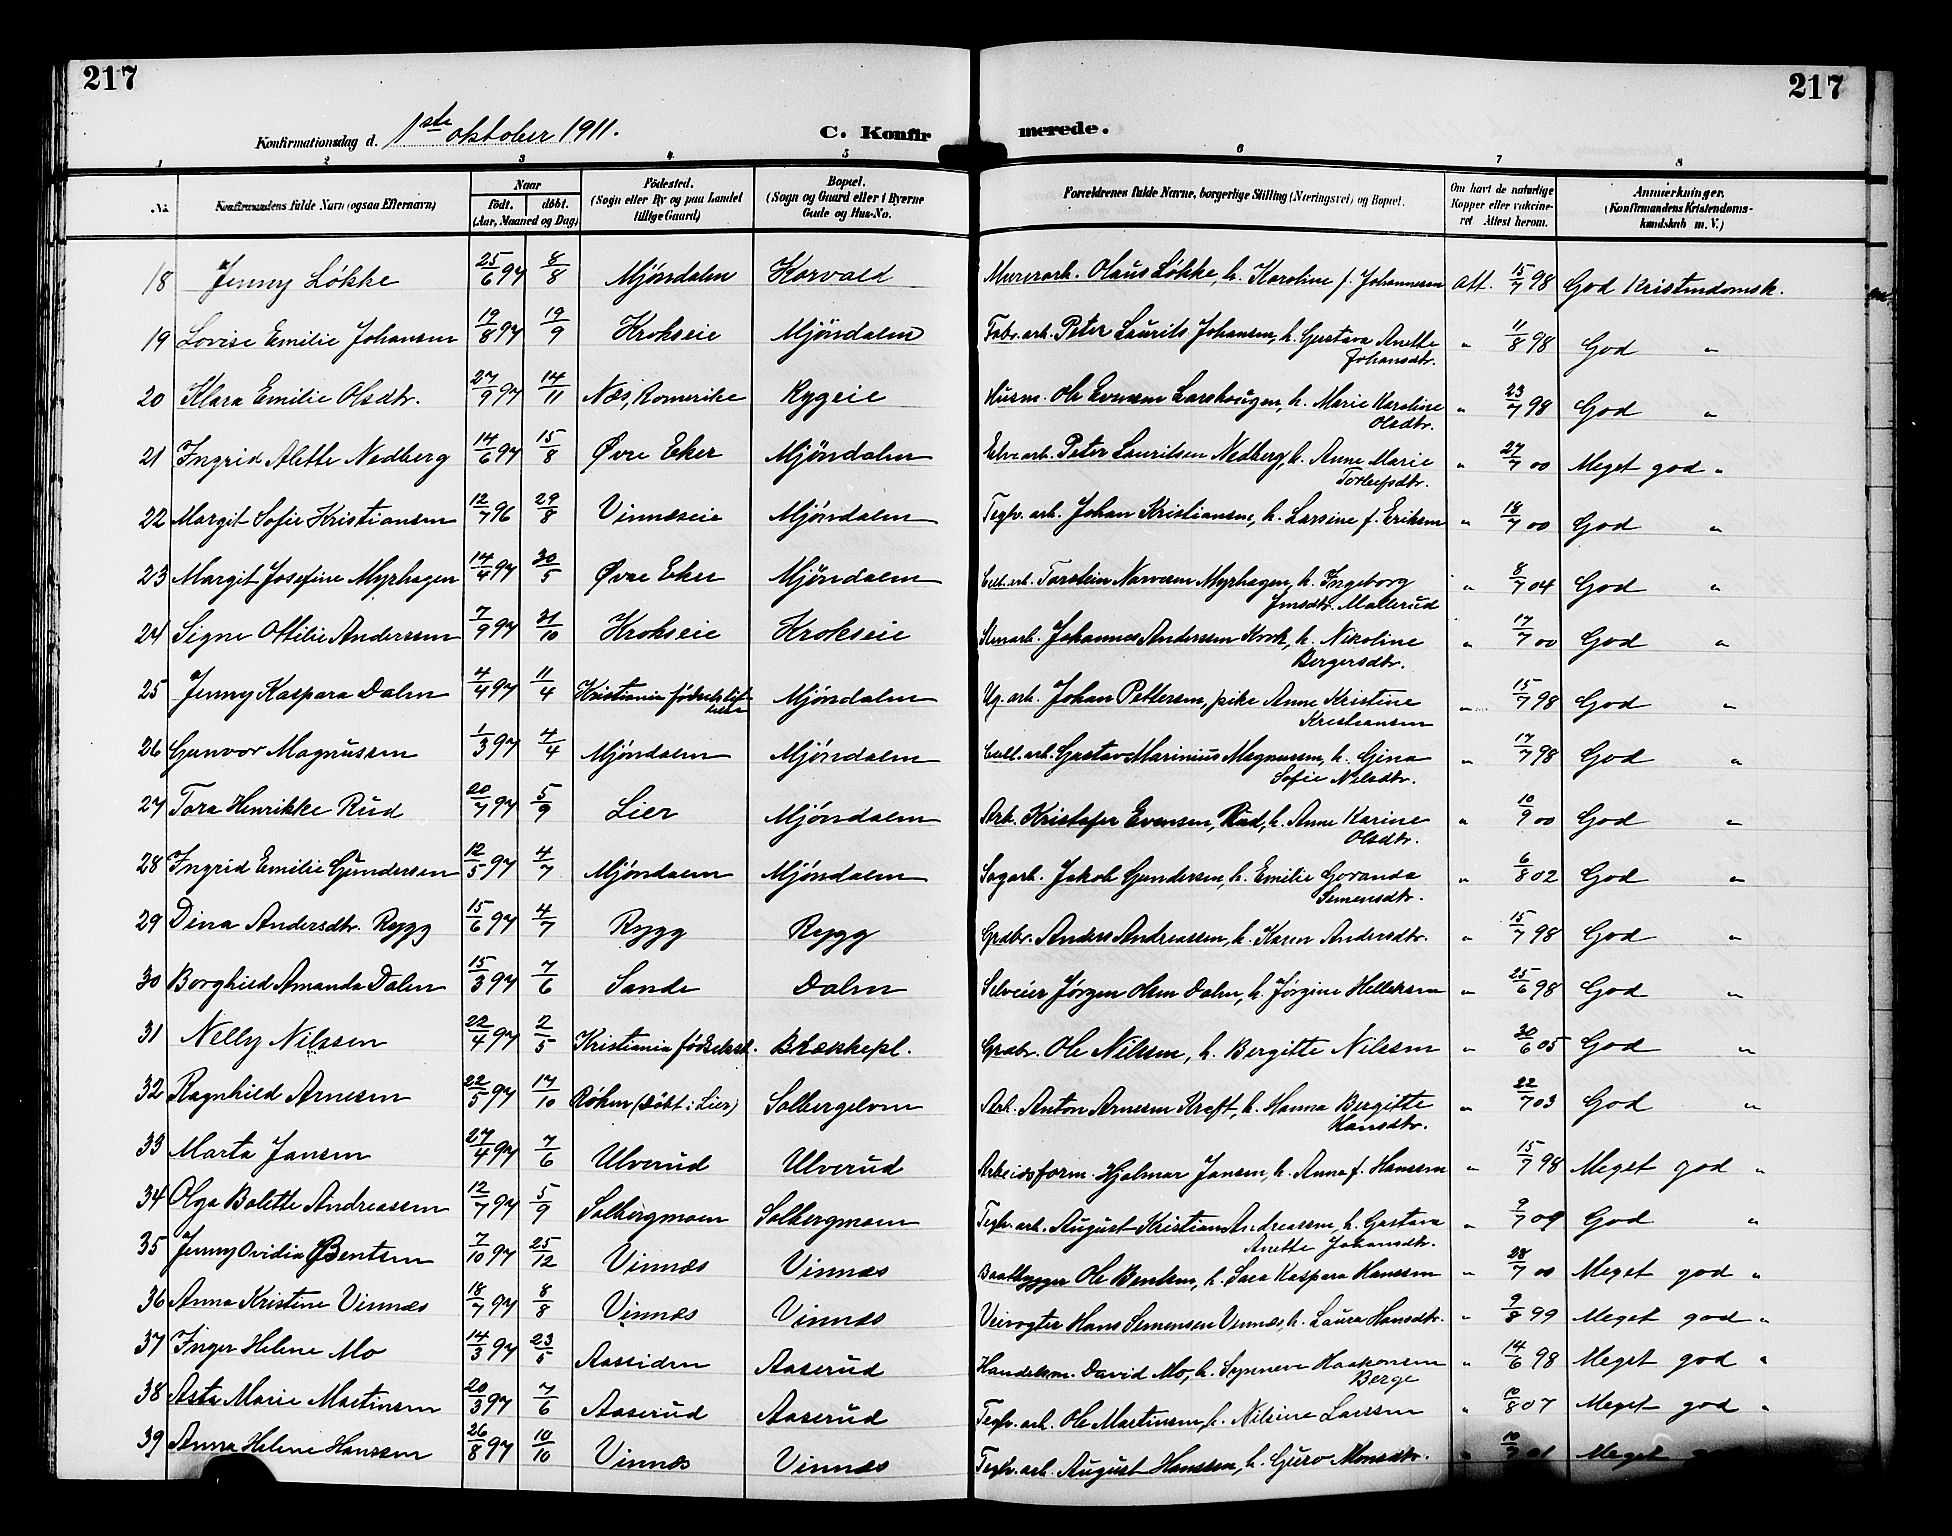 217
217
Konfirmationsdag d. 1ste oktober 1911.
C. Konfirmerede.
1 2 3 4 5 6 7 8
No.
Konfirmandens fulde Navn (ogsaa Efternavn)
Naar
født. døbt.
(Aar, Maaned og Dag)
Födested.
(Sogn eller By og paa Landet
tillige Gaard)
Bopæl.
(Sogn og Gaard eller i Byerne
Gade og Hus-No.
Forældrenes fulde Navne, borgerlige Stilling (Næringsvei) og Bopæl.
Om havt de naturlige
Kopper eller vakcine-
ret Attest herom.
Anmærkninger.
(Konfirmandens Kristendoms-
kundskab m. V.)
18 Jenny Løkke 25/6 97 8/8 Mjöndalen Korvald Murerarb. Olaus Løkke, h. Karoline f. Johannesen Att. 15/7 98 God Kristendomsk.
19 Lovise Emilie Johansen 19/8 97 19/9 Krokseie Mjöndalen Fabr. arb. Peter Laurits Johansen, h. Gustava Anette " 11/8 98 God "
Johansdtr.
20 Klara Emilie Olsdtr. 27/9 97 14/11 Næs, Romerike Rygeie Husm. Ole Evensen Larshougen, h. Marie Karoline " 23/7 98 God "
Olsdtr.
21 Ingrid Alette Nedberg 14/6 97 15/8 Øvre Eker Mjöndalen Elvearb. Peter Lauritsen Nedberg, h. Anne Marie " 27/7 00 Meget god "
Torleifsdtr.
22 Margit Sofie Kristiansen 12/7 96 29/8 Vinnæseie Mjöndalen Teglv. arb. Johan Kristiansen, h. Larsine f. Eriksen " 18/7 00 God "
23 Margit Josefine Myrhagen 14/4 97 30/5 Øvre Eker Mjöndalen Cell. arb. Torstein Narvesen Myrhagen, h. Ingeborg " 8/7 04 God "
Jensdtr. Møllerud
24 Signe Ottilie Anderssen 7/9 97 31/10 Krokseie Krokseie Stenarb. Johannes Anderssen Krok, h. Nikoline " 17/7 00 God "
Bergersdtr.
25 Jenny Kaspara Dalen 4/4 97 11/4 Kristiania fødselsstif- Mjöndalen Ug. arb. Johan Pettersen, pike Anne Kristine " 15/7 98 God "
telse Kristiansen
26 Gunvor Magnussen 1/3 97 4/4 Mjöndalen Mjöndalen Cell. arb. Gustav Marinius Magnussen, h. Gina " 17/7 98 God "
Sofie Nilsdtr.
27 Tora Henrikke Rud 20/7 97 5/9 Lier Mjöndalen Arb. Kristofer Evensen, Rud, h. Anne Karine " 10/9 00 God "
Olsdtr.
28 Ingrid Emilie Gundersen 12/5 97 4/7 Mjöndalen Mjöndalen Sagarb. Jakob Gundersen, h. Emilie Goranda " 6/8 02 God "
Simensdtr.
29 Dina Andersdtr. Rygg 15/6 97 4/7 Rygg Rygg Grdbr. Anders Andreassen, h. Karen Andersdtr. " 15/7 98 God "
30 Borghild Amanda Dalen 15/3 97 7/6 Sande Dalen Selveier Jørgen Olsen Dalen, h. Jørgine Helleksen " 25/6 98 God "
31 Nelly Nilssen 22/4 97 2/5 Kristiania fødselsst. Blekkepl. Grdbr. Ole Nilssen, h. Bergitte Nilssen " 30/6 05 God "
32 Ragnhild Arnesen 22/5 97 17/10 Røken (døbt i Lier) Solbergelven Arb. Anton Arnesen Kreft, h. Hanna Bergitte " 22/7 03 God "
Hansdtr.
33 Marta Jansen 27/4 97 7/6 Ulverud Ulverud Arbeidsform. Hjalmar Jansen, h. Anna f. Hanssen " 15/7 98 Meget god "
34 Olga Bolette Andreassen 12/7 97 5/9 Solbergmoen Solbergmoen Teglv. arb. August Kristian Andreassen, h. Gustava " 9/7 09 God "
Anette Johansdtr.
35 Jenny Ovidia Bentsen 7/10 97 25/12 Vinnæs Vinnæs Baatbygger Ole Bentsen, h. Sara Kaspara Hanssen " 28/7 00 Meget god "
36 Anna Kristine Vinnæs 18/7 97 8/8 Vinnæs Vinnæs Veivogter Hans Simensen Vinnæs, h. Laura Hansdtr. " 9/8 99 Meget god "
37 Inger Helene Mo 14/3 97 23/5 Aassiden Aaserud Handelsm. David Mo, h. Synneve Haakonsen " 14/6 98 Meget god "
Berge
38 Asta Marie Martinsen 20/3 97 7/6 Aaserud Aaserud Teglv. arb. Ole Martinsen, h. Nilsine Larssen " 10/8 07 Meget god "
39 Anna Helene Hanssen 26/8 97 10/10 Vinnæs Vinnæs Teglv. arb. August Hanssen, h. Guro Monsdtr. " Meget